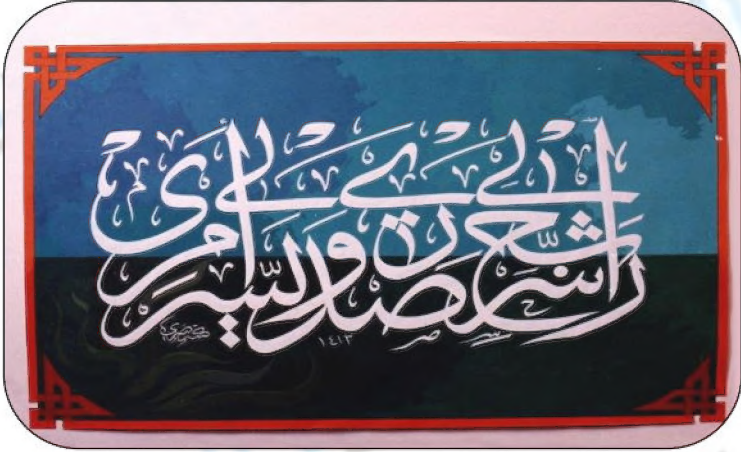 رب اشرح لي صدري ويسر لي امري
١٤١٣